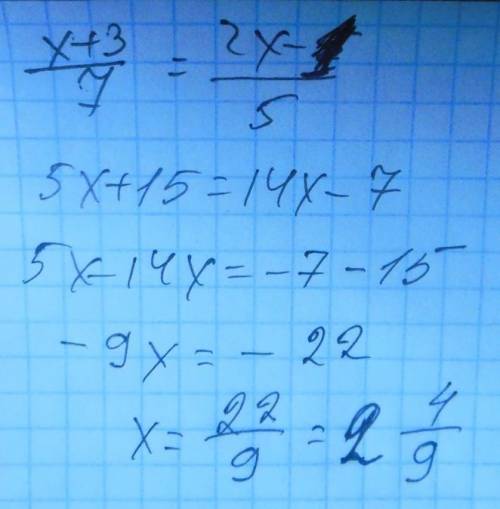 x+3/7 = 2x-/5
5x+15=14x-7
5x-14x=-7-15
-9x=-22
x=22/9=2 4/9